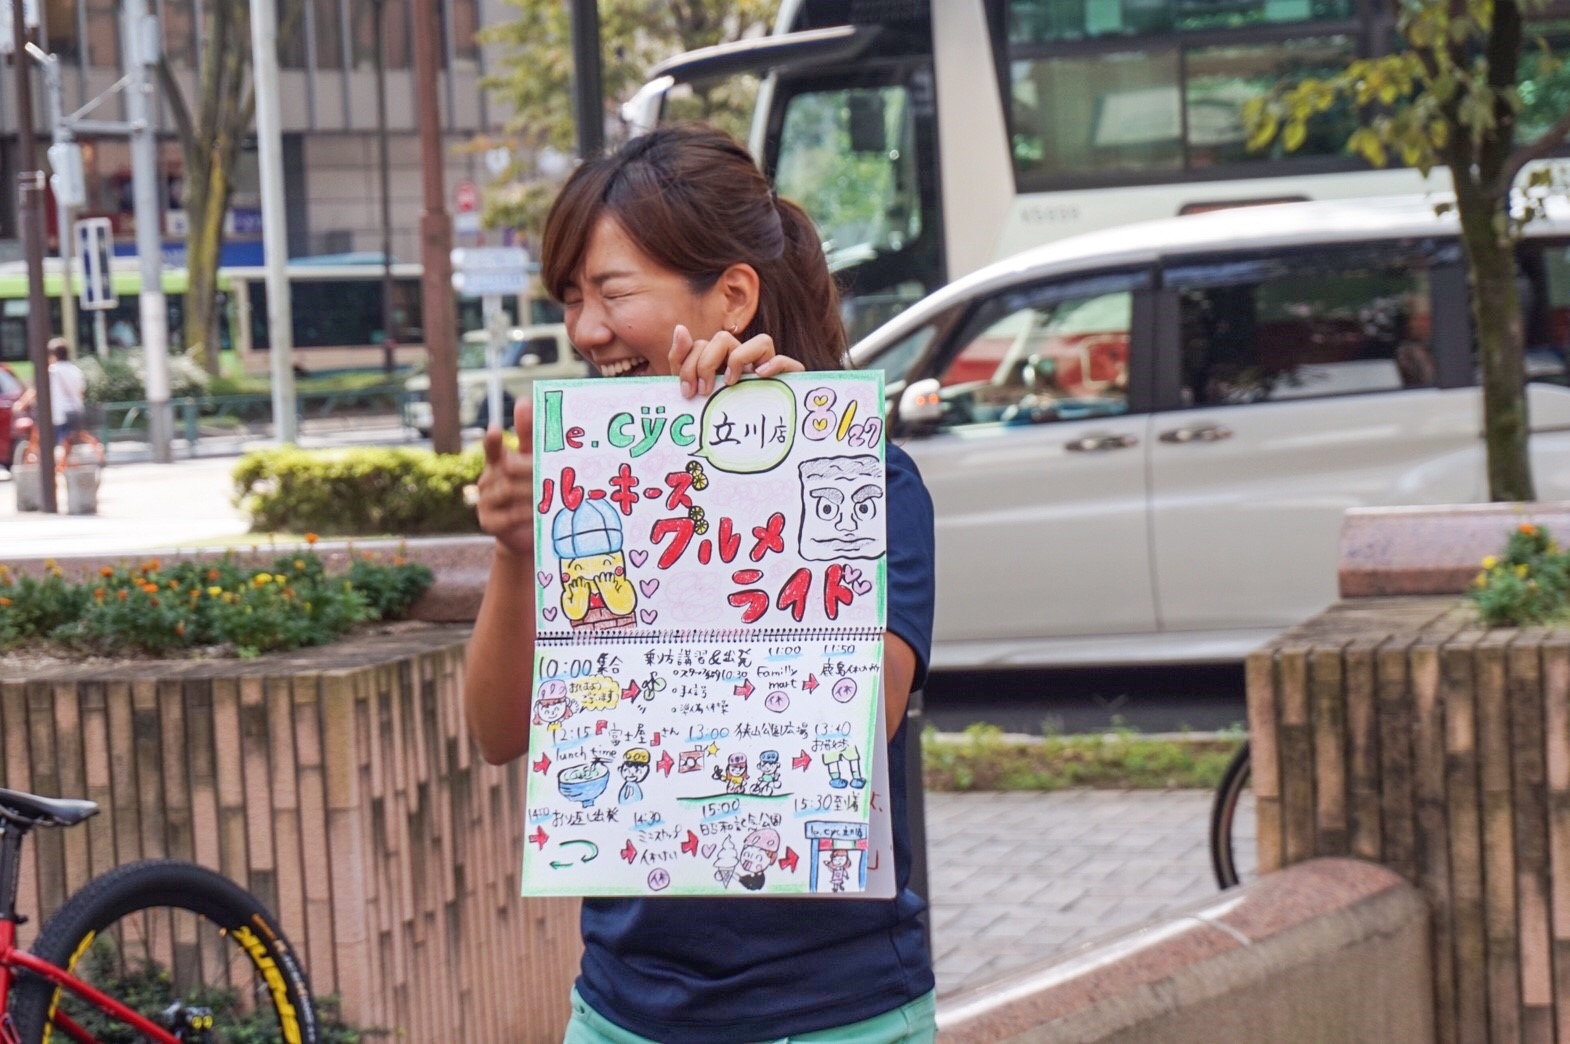 le.cyc 立川店 8/27
ルーキーズ
グルメ
ライド
10:00集合 乗り方講習&出発 11:00 11:50
おはようございます 10:30 Family mart 休 休
12:15『富士屋』さん 13:00 狭山公園広場 13:40
lunch time お散歩
14:10 折り返し出発 14:30 15:00 15:30 到着
ミニストップ 昭和記念公園
休けい
休
le.cyc 立川店